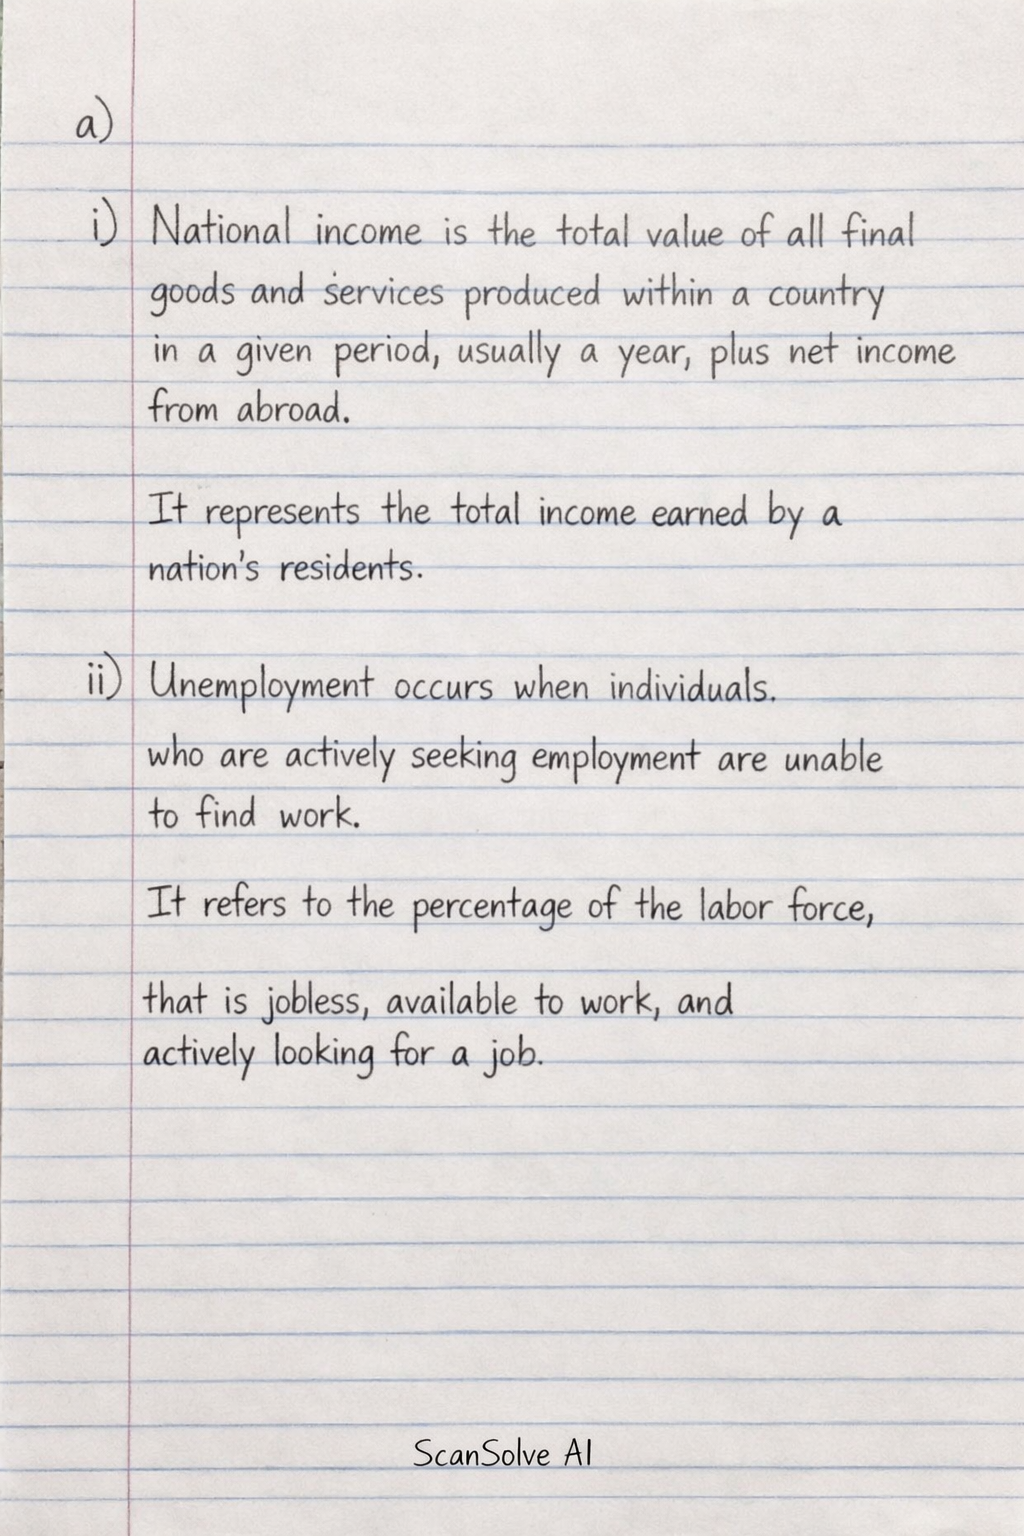 a)
i) National income is the total value of all final
goods and services produced within a country
in a given period, usually a year, plus net income
from abroad.
It represents the total income earned by a
nation's residents.
ii) Unemployment occurs when individuals.
who are actively seeking employment are unable
to find work.
It refers to the percentage of the labor force,
that is jobless, available to work, and
actively looking for a job.
ScanSolve AI